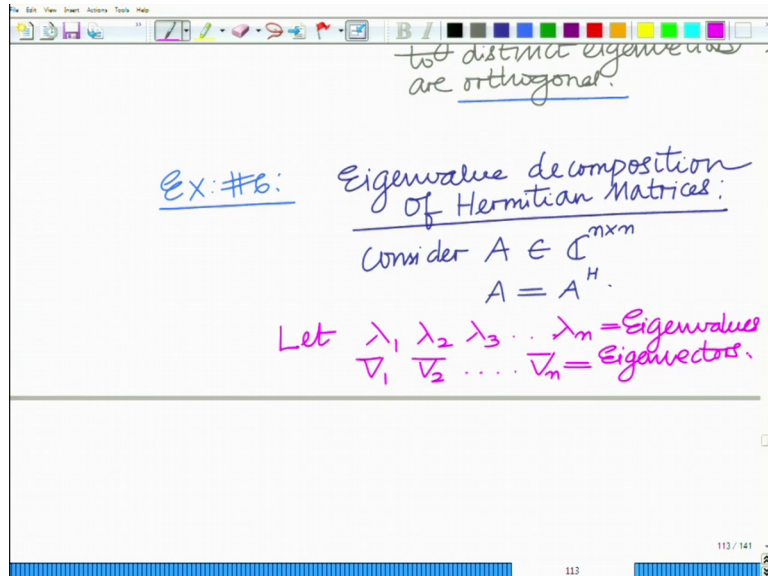 File Edit View Insert Actions Tools Help
B I
to distinct eigenvectors
are orthogonal.
Ex:#6: Eigenvalue decomposition
of Hermitian Matrices:
Consider A ∈ ℂⁿˣⁿ
A = Aᴴ.
Let λ₁ λ₂ λ₃ .. λₙ = Eigenvalues
V̄₁ V̄₂ .... V̄ₙ = Eigenvectors.
113 / 141
113